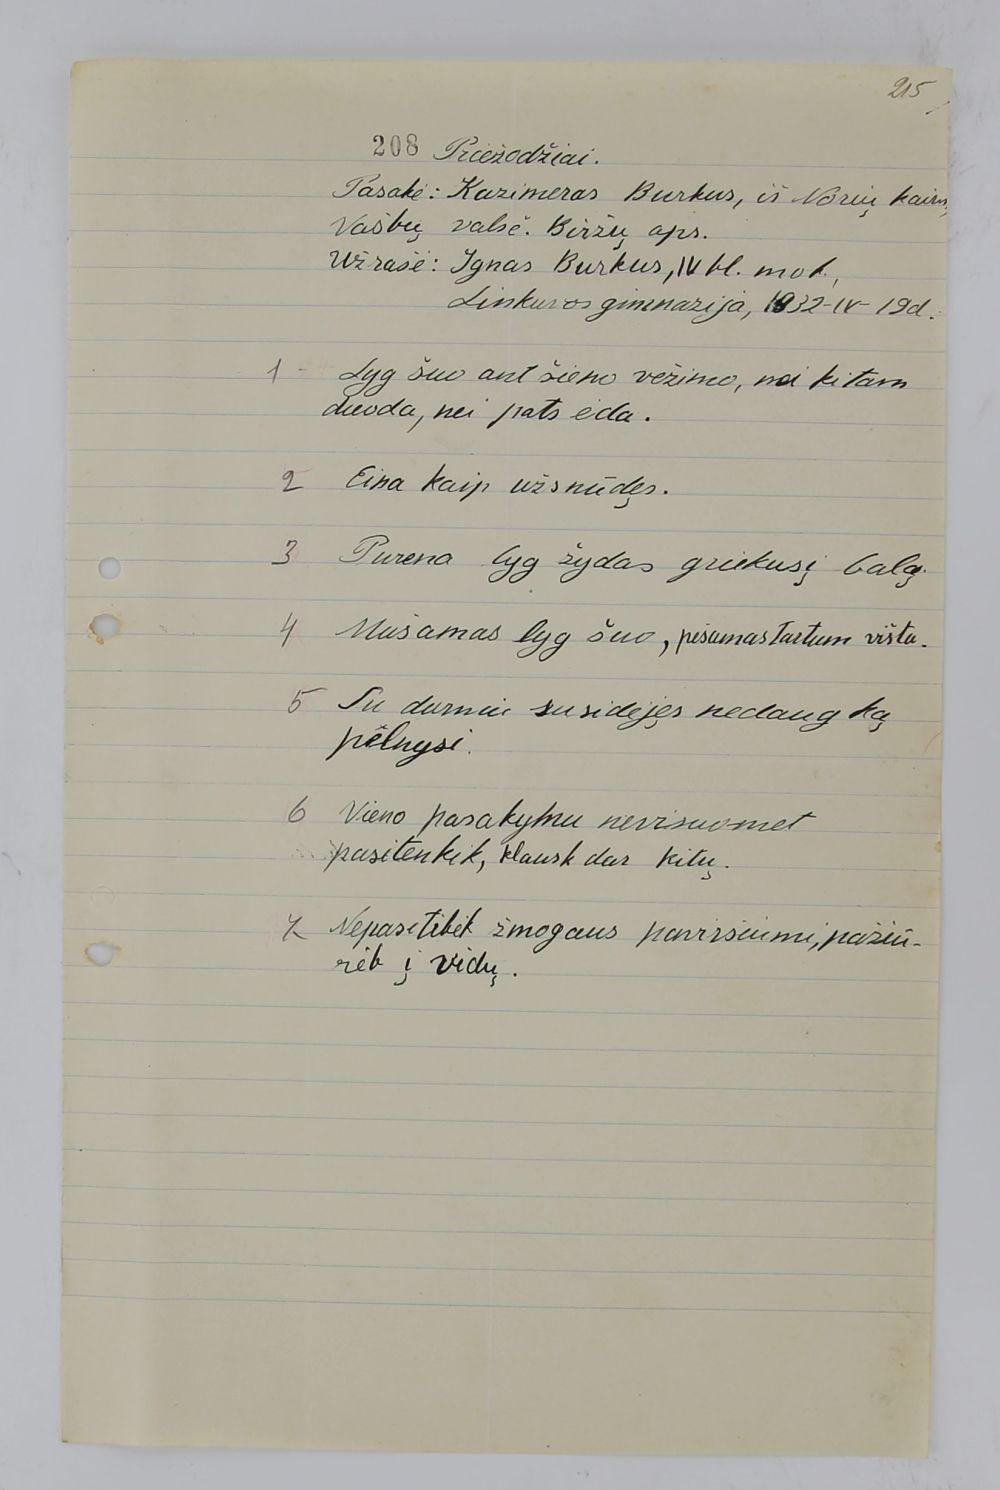 215
208 Priežodžiai.
Pasakė: Kazimeras Burkus, iš Norių kaim,
Vaškų valsč. Biržų aps.
Užrašė: Ignas Burkus, IV kl. mok.,
Linkuvos gimnazija, 1932-IV-19d.
1 - Lyg šuo ant šieno vežimo, nei kitam
duoda, nei pats ėda.
2 Eina kaip užsnūdęs.
3 Purena lyg žydas griekusį balą.
4 Mušamas lyg šuo, pešamas tartum višta.
5 Su durniu susidėjęs nedaug ką
pelnysi.
6 Vieno pasakymu nevisuomet
pasitenkik, klausk dar kitų.
7 Nepasitikėk žmogaus paviršiumi, pažiū-
rėk į vidų.